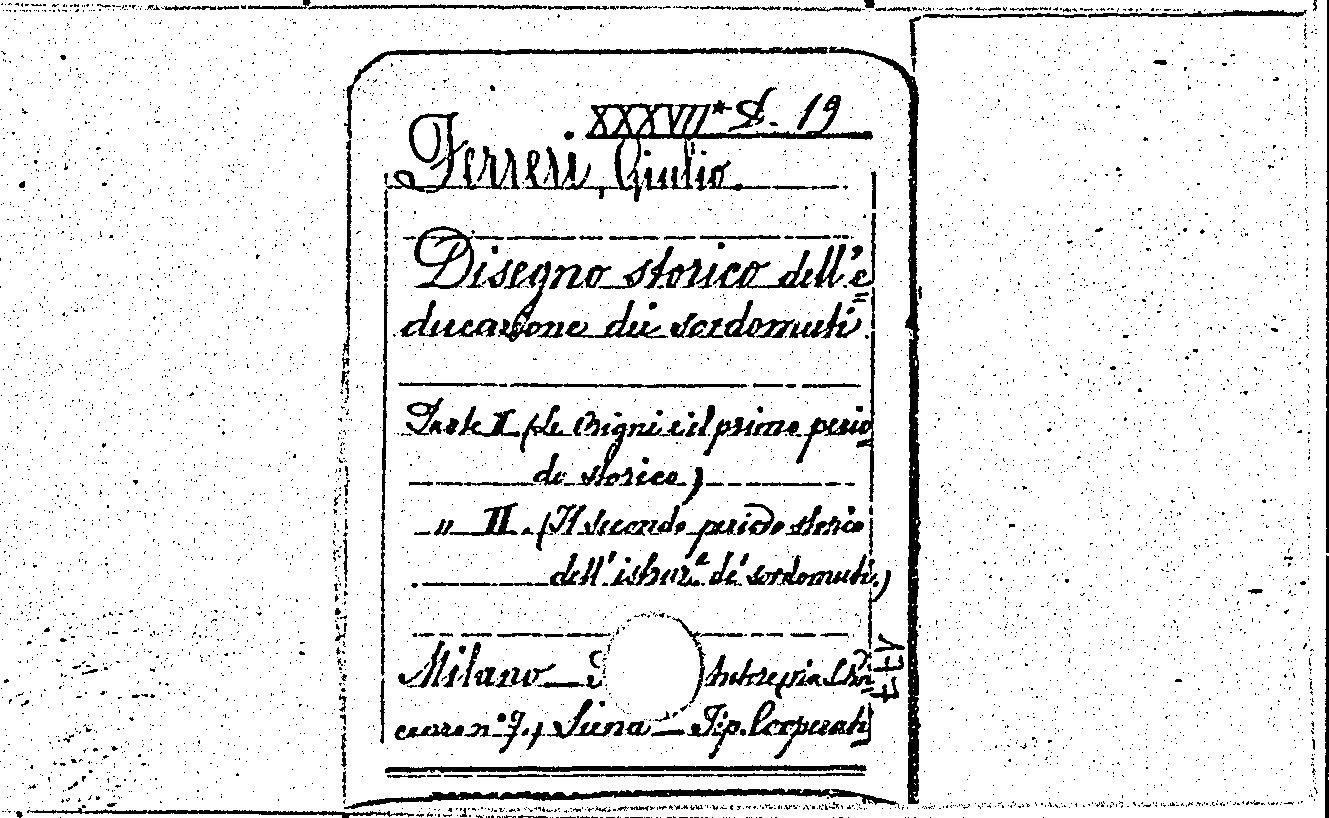 XXXVII* D. 19
Ferreri, Giulio.
Disegno storico dell'e=
ducazione dei sordomuti.
Parte I (Le Origni e il primo perio=
do storico)
" II. (Il secondo periodo storico
dell'istruz.e de' sordomuti.)
Milano
n° 9., Siena — Tip. Cooperati